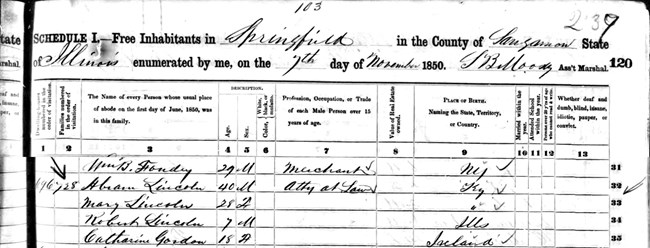 103
239
SCHEDULE I.—Free Inhabitants in Springfield in the County of Sangamon State
of Illinois enumerated by me, on the 7th day of November 1850. S B Moody Ass't Marshal. 120
tate
arshal.
Dwelling-houses numbered in the order of visitation.
Families numbered in the order of visitation.
The Name of every Person whose usual place of abode on the first day of June, 1850, was in this family.
DESCRIPTION.
Age.
Sex.
Color, White, black, or mulatto.
Profession, Occupation, or Trade of each Male Person over 15 years of age.
Value of Real Estate owned.
PLACE OF BIRTH.
Naming the State, Territory, or Country.
Married within the year.
Attended School within the year.
Whether deaf and dumb, blind, insane, idiotic, pauper, or convict.
1 2 3 4 5 6 7 8 9 10 11 12 13
Wm B. Fondey 29 M Merchant NY 31
196 728 Abram Lincoln 40 M Atty at Law Ky 32
Mary Lincoln 28 F " 33
Robert Lincoln 7 M Ills 34
Catharine Gordon 18 F Ireland 35